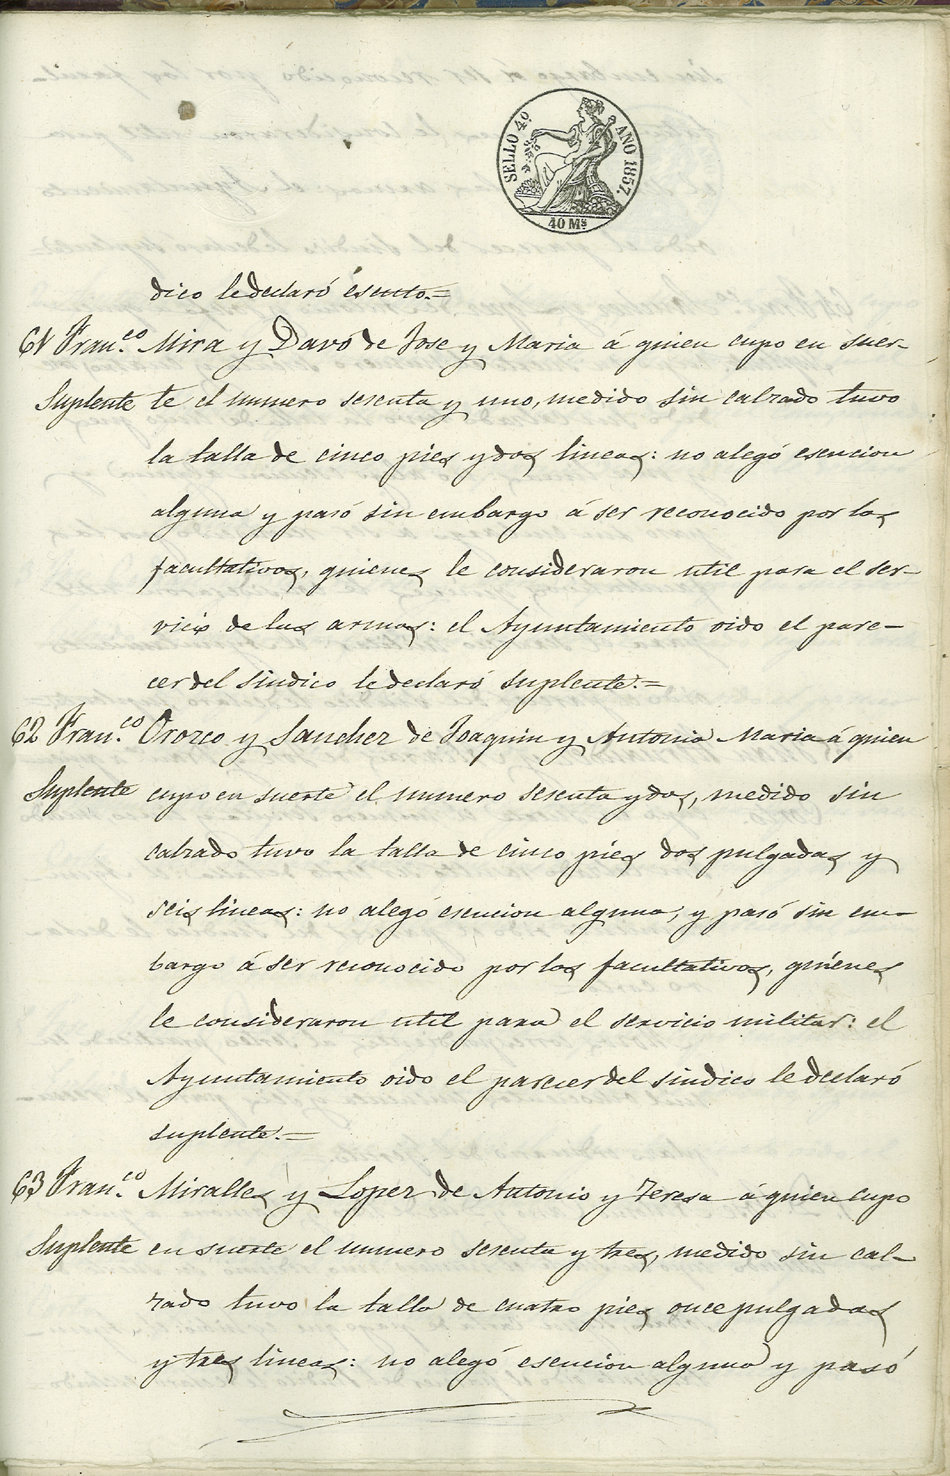 SELLO 4º AÑO 1857.
40 Ms
dico le declaró esento.=
61 Fran.co Mira y Davó de Jose y Maria á quien cupo en suer-
Suplente te el numero sesenta y uno, medido sin calzado tuvo
la talla de cinco pies y dos lineas: no alegó esencion
alguna y pasó sin embargo á ser reconocido por los
facultativos, quienes le consideraron util para el ser-
vicio de las armas: el Ayuntamiento oido el pare-
cer del sindico le declaró suplente.=
62 Fran.co Orozco y Sanchez de Joaquin y Antonia Maria á quien
Suplente cupo en suerte el numero sesenta y dos, medido sin
calzado tuvo la talla de cinco pies dos pulgadas y
seis lineas: no alegó esencion alguna, y pasó sin em-
bargo á ser reconocido por los facultativos, quienes
le consideraron util para el servicio militar: el
Ayuntamiento oido el parecer del sindico le declaró
suplente.=
63 Fran.co Miralles y Lopez de Antonio y Teresa á quien cupo
Suplente en suerte el numero sesenta y tres, medido sin cal-
zado tuvo la talla de cuatro pies once pulgadas
y tres lineas: no alegó esencion alguna y pasó